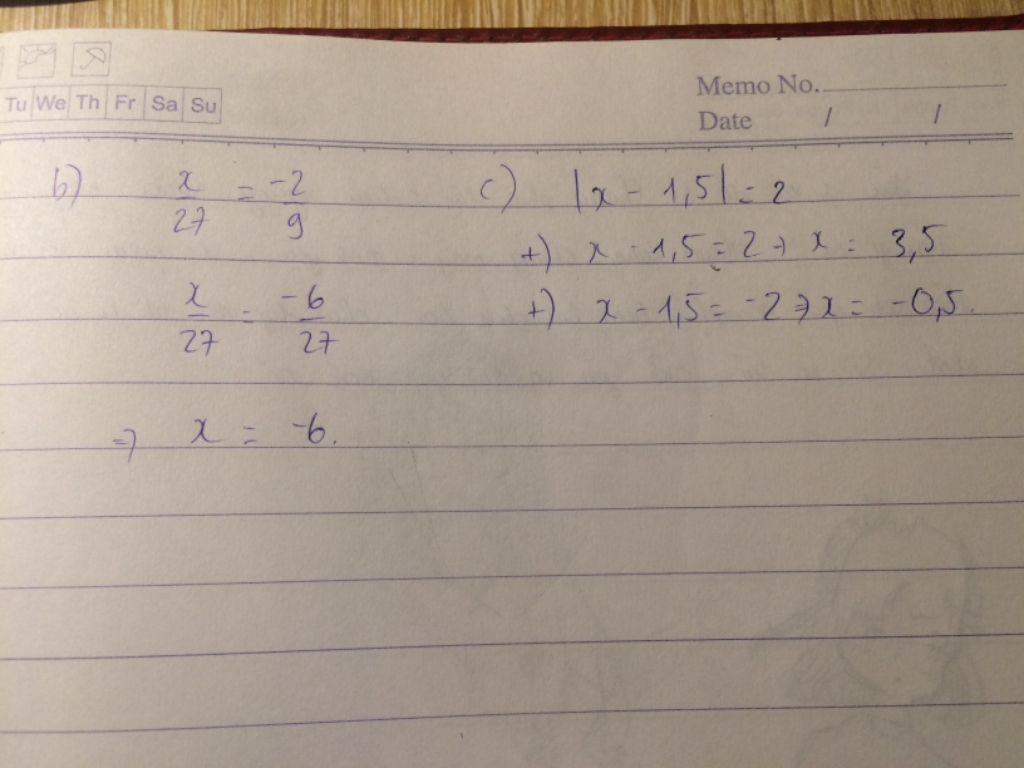 Tu We Th Fr Sa Su
Memo No.
Date / /
b) x/27 = -2/9
x/27 = -6/27
=> x = -6.
c) |x - 1,5| = 2
+) x - 1,5 = 2 => x = 3,5
+) x - 1,5 = -2 => x = -0,5.